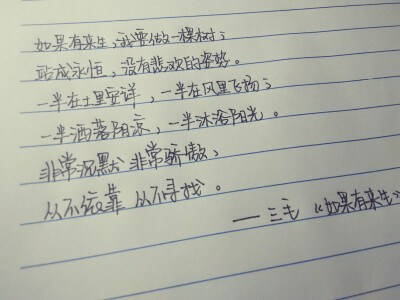 如果有来生，我要做一棵树，
站成永恒，没有悲欢的姿势。
一半在土里安详，一半在风里飞扬；
一半洒落阴凉，一半沐浴阳光。
非常沉默 非常骄傲，
从不依靠 从不寻找。
——三毛《如果有来生》